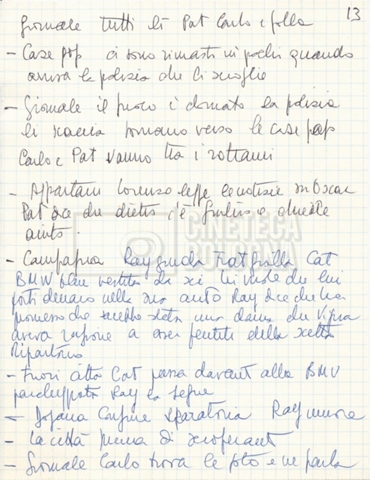 13
Giornale tutti lì Pat Carlo e folla
- Case pop ci sono rimasti in pochi quando
arriva la polizia che li scioglie
- Giornale il fuoco è domato la polizia
li scaccia tornano verso le case pop
Carlo e Pat vanno tra i rottami
- Appartam Lorenzo legge le notizie su Oscar
Pat dice che dietro c'è Giulio e chiede
aiuto.
CINETECA
BOLOGNA
- Campagna Ray guida Cat
BMW blu vestita da lui
porti denaro nella sua auto Ray dice che ha
che sarebbe stata una dama che
aveva ragione a esser pentita della scelta
Ripartono
- Fuori città Cat passa davanti alla BMW
parcheggiata Ray la segue
- Dogana sparatoria Ray muore
- La città piena di scioperanti
- Giornale Carlo trova le foto e ne parla